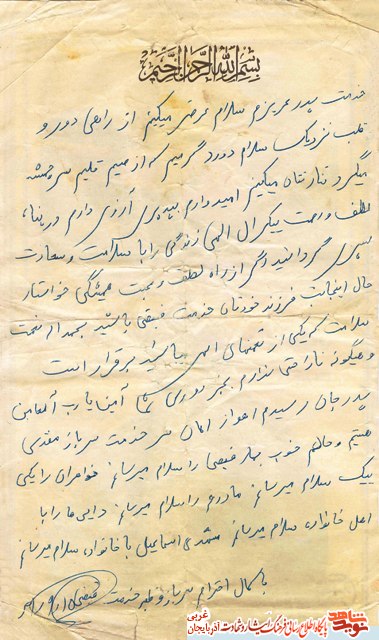 بسم الله الرحمن الرحیم
خدمت پدر عزیزم سلام عرض میکنم از راهی دور و
قلب نزدیک سلام و درود گرمیم که از صمیم قلبم سرچشمه
میگیرد نثارتان میکنم امیدوارم بپذیری آرزی دارم در پناه
لطف و رحمت بیکران الهی زندگی را با سلامت و سعادت
سپری گردانید اگر از راه لطف و محبت همیشگی خواستار
حال اینجانب فرزند خودتان خدمت فیضی باشید بحمدالله نعمت
سلامت که یکی از نعمتهای الهی میباشد برقرار است
و هیچگونه ناراحتی ندارم بجز دوری شما آمین یا رب العالمین
پدر جان رسیدم اهواز الان سر خدمت سرباز مقدسی
هستم و حالم خوب فیضی را سلام میرسانم خواهران را یکی
یک سلام میرسانم مادرم را سلام میرسانم دایی ها را با
اهل خانواده سلام میرسانم مشهدی اسماعیل با خانواده سلام میرسانم
با کمال احترام سرباز وظیفه خدمت فیضی
نوید شاهد
پایگاه اطلاع رسانی فرهنگ ایثار و شهادت آذربایجان غربی